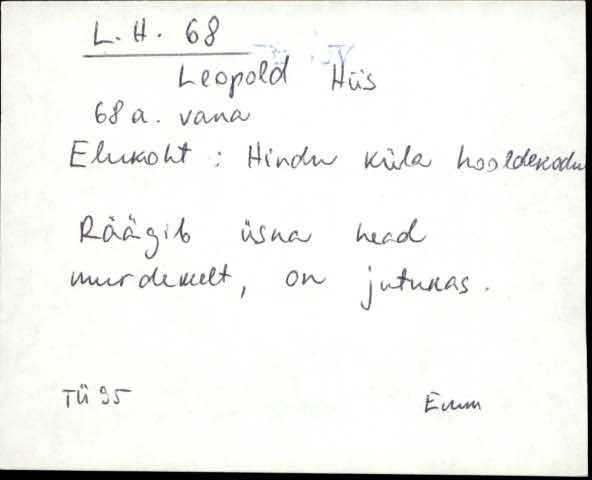 L. H. 68
Leopold Hiis
68 a. vana
Elukoht : Hindu küla hooldekodu
Räägib üsna head
murdekelt, on jutukas.
TÜ 95